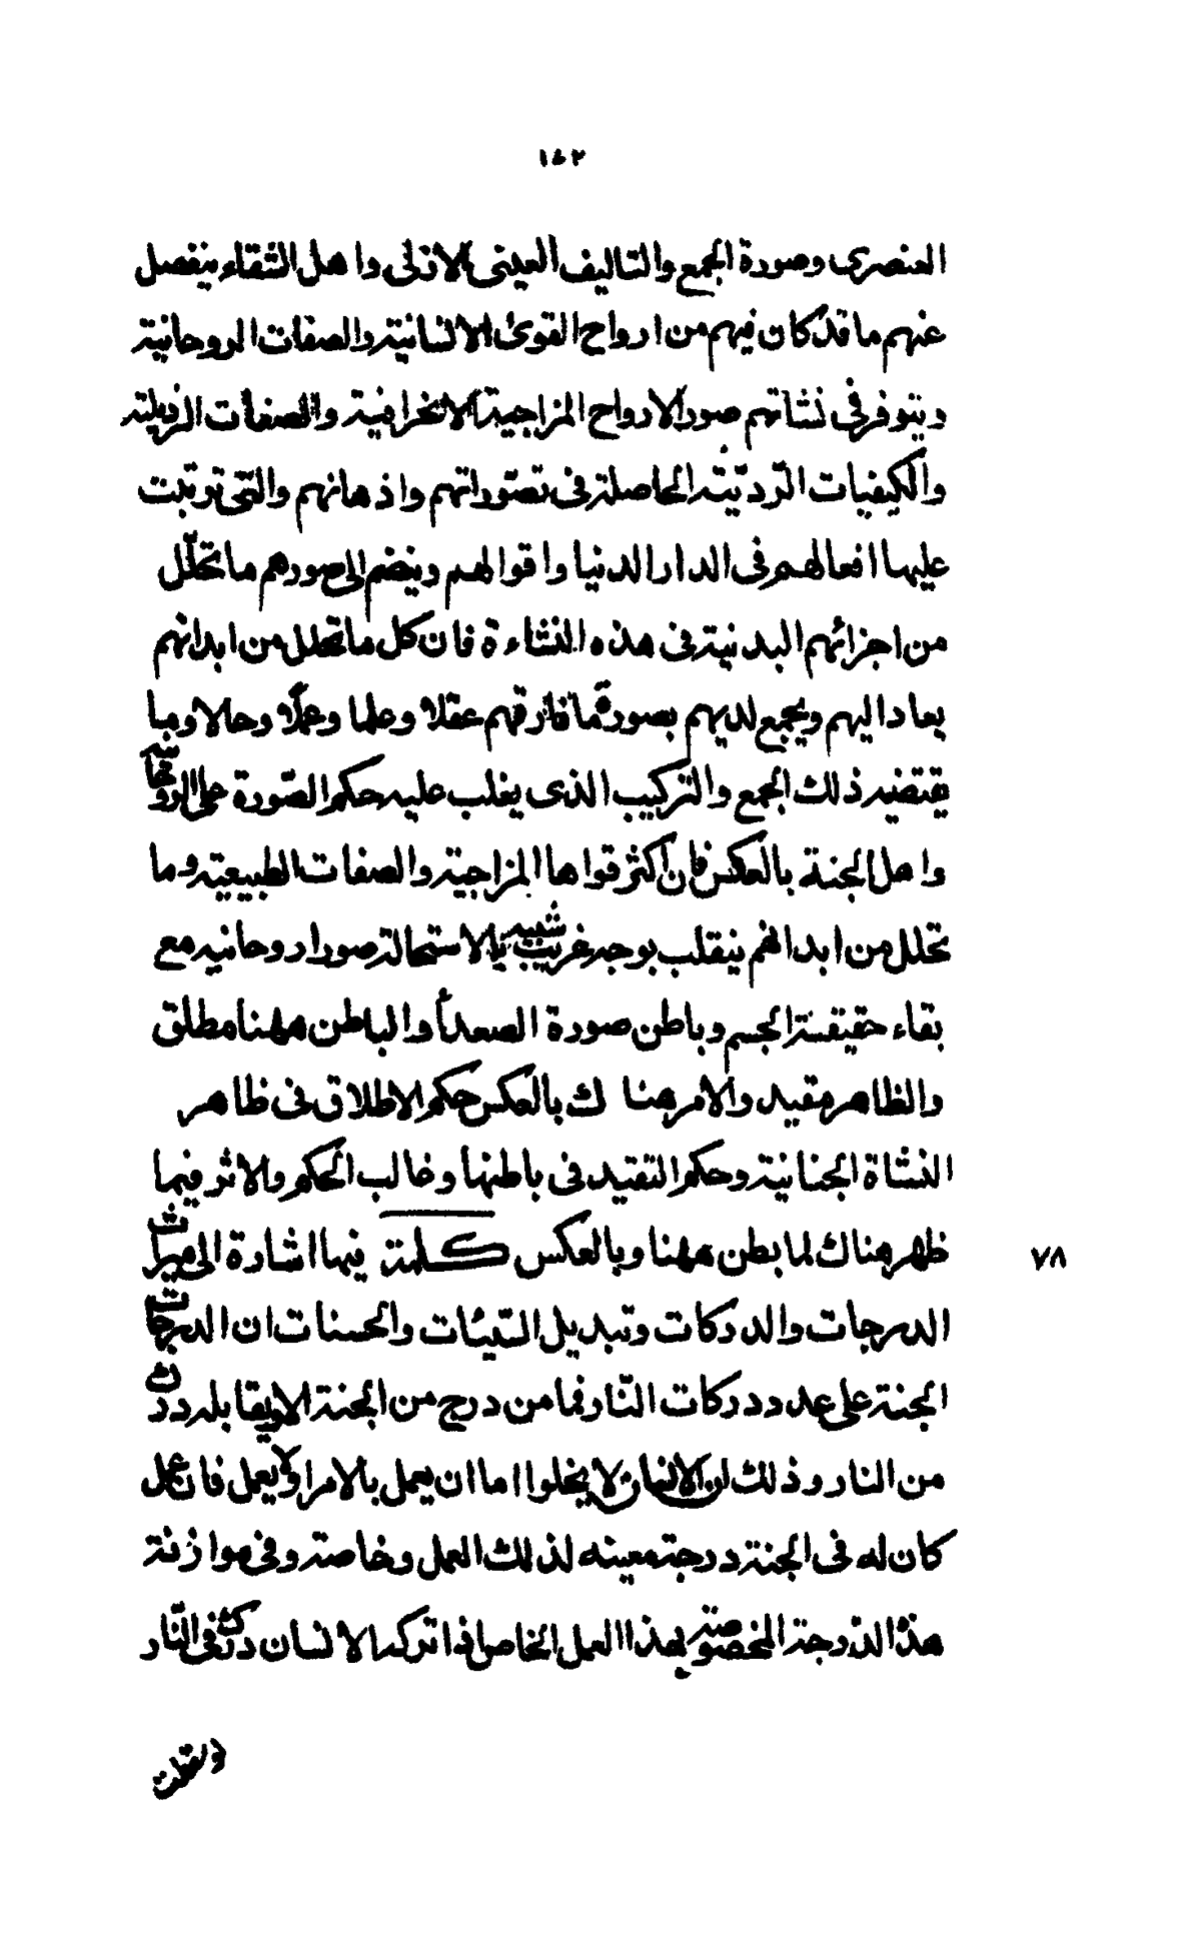 ١٤٢
العنصرى وصورة الجمع والتاليف العينى الازلى واهل الشقاء ينفصل
عنهم ما قد كان فيهم من ارواح القوى الانسانية والصفات الروحانية
ويتوفر فى نشاتهم صور الارواح المزاجية الانحرافية والصفات الرذيلة
والكيفيات الرّديّة الحاصلة فى تصوّراتهم واذهانهم والتى ترتبت
عليها افعالهم فى الدار الدنيا واقوالهم وينضم الى صورهم ما تحلّل
من اجزائهم البدنية فى هذه النشاءة فان كل ما تحلل من ابدانهم
يعاد اليهم ويجمع لديهم بصورة ما فارقهم عقلا وعلما وعملا وحالا وما
يقتضيه ذلك الجمع والتركيب الذى يغلب عليه حكم الصّورة على الروحانية
واهل الجنة بالعكس فان اكثر قواها المزاجية والصفات الطبيعية وما
تحلل من ابدانهم ينقلب بوجه غريب شبيه بالاستحالة صورا روحانيه مع
بقاء حقيقة الجسم وباطن صورة الصعدأ والباطن ههنا مطلق
والظاهر مقيد والامر هناك بالعكس حكم الاطلاق فى ظاهر
النشاة الجنانية وحكم التقيد فى باطنها وغالب الحكم والاثر فيما
ظهر هناك لما بطن ههنا وبالعكس كلمة فيها اشارة الى ميراث
الدرجات والدركات وتبديل السّيئات والحسنات ان الدرجات
الجنة على عدد دركات النّار فما من درج من الجنة الا ويقابله درك
من النار وذلك لان الانسان لا يخلوا اما ان يعمل بالامر او لا يعمل فان عمل
كان له فى الجنة درجة معينه لذلك العمل وخاصة وفى موازنة
هذه الدّرجة المخصوصة بهذا العمل الخاص اذا تركه الانسان درك فى النّار
٧٨